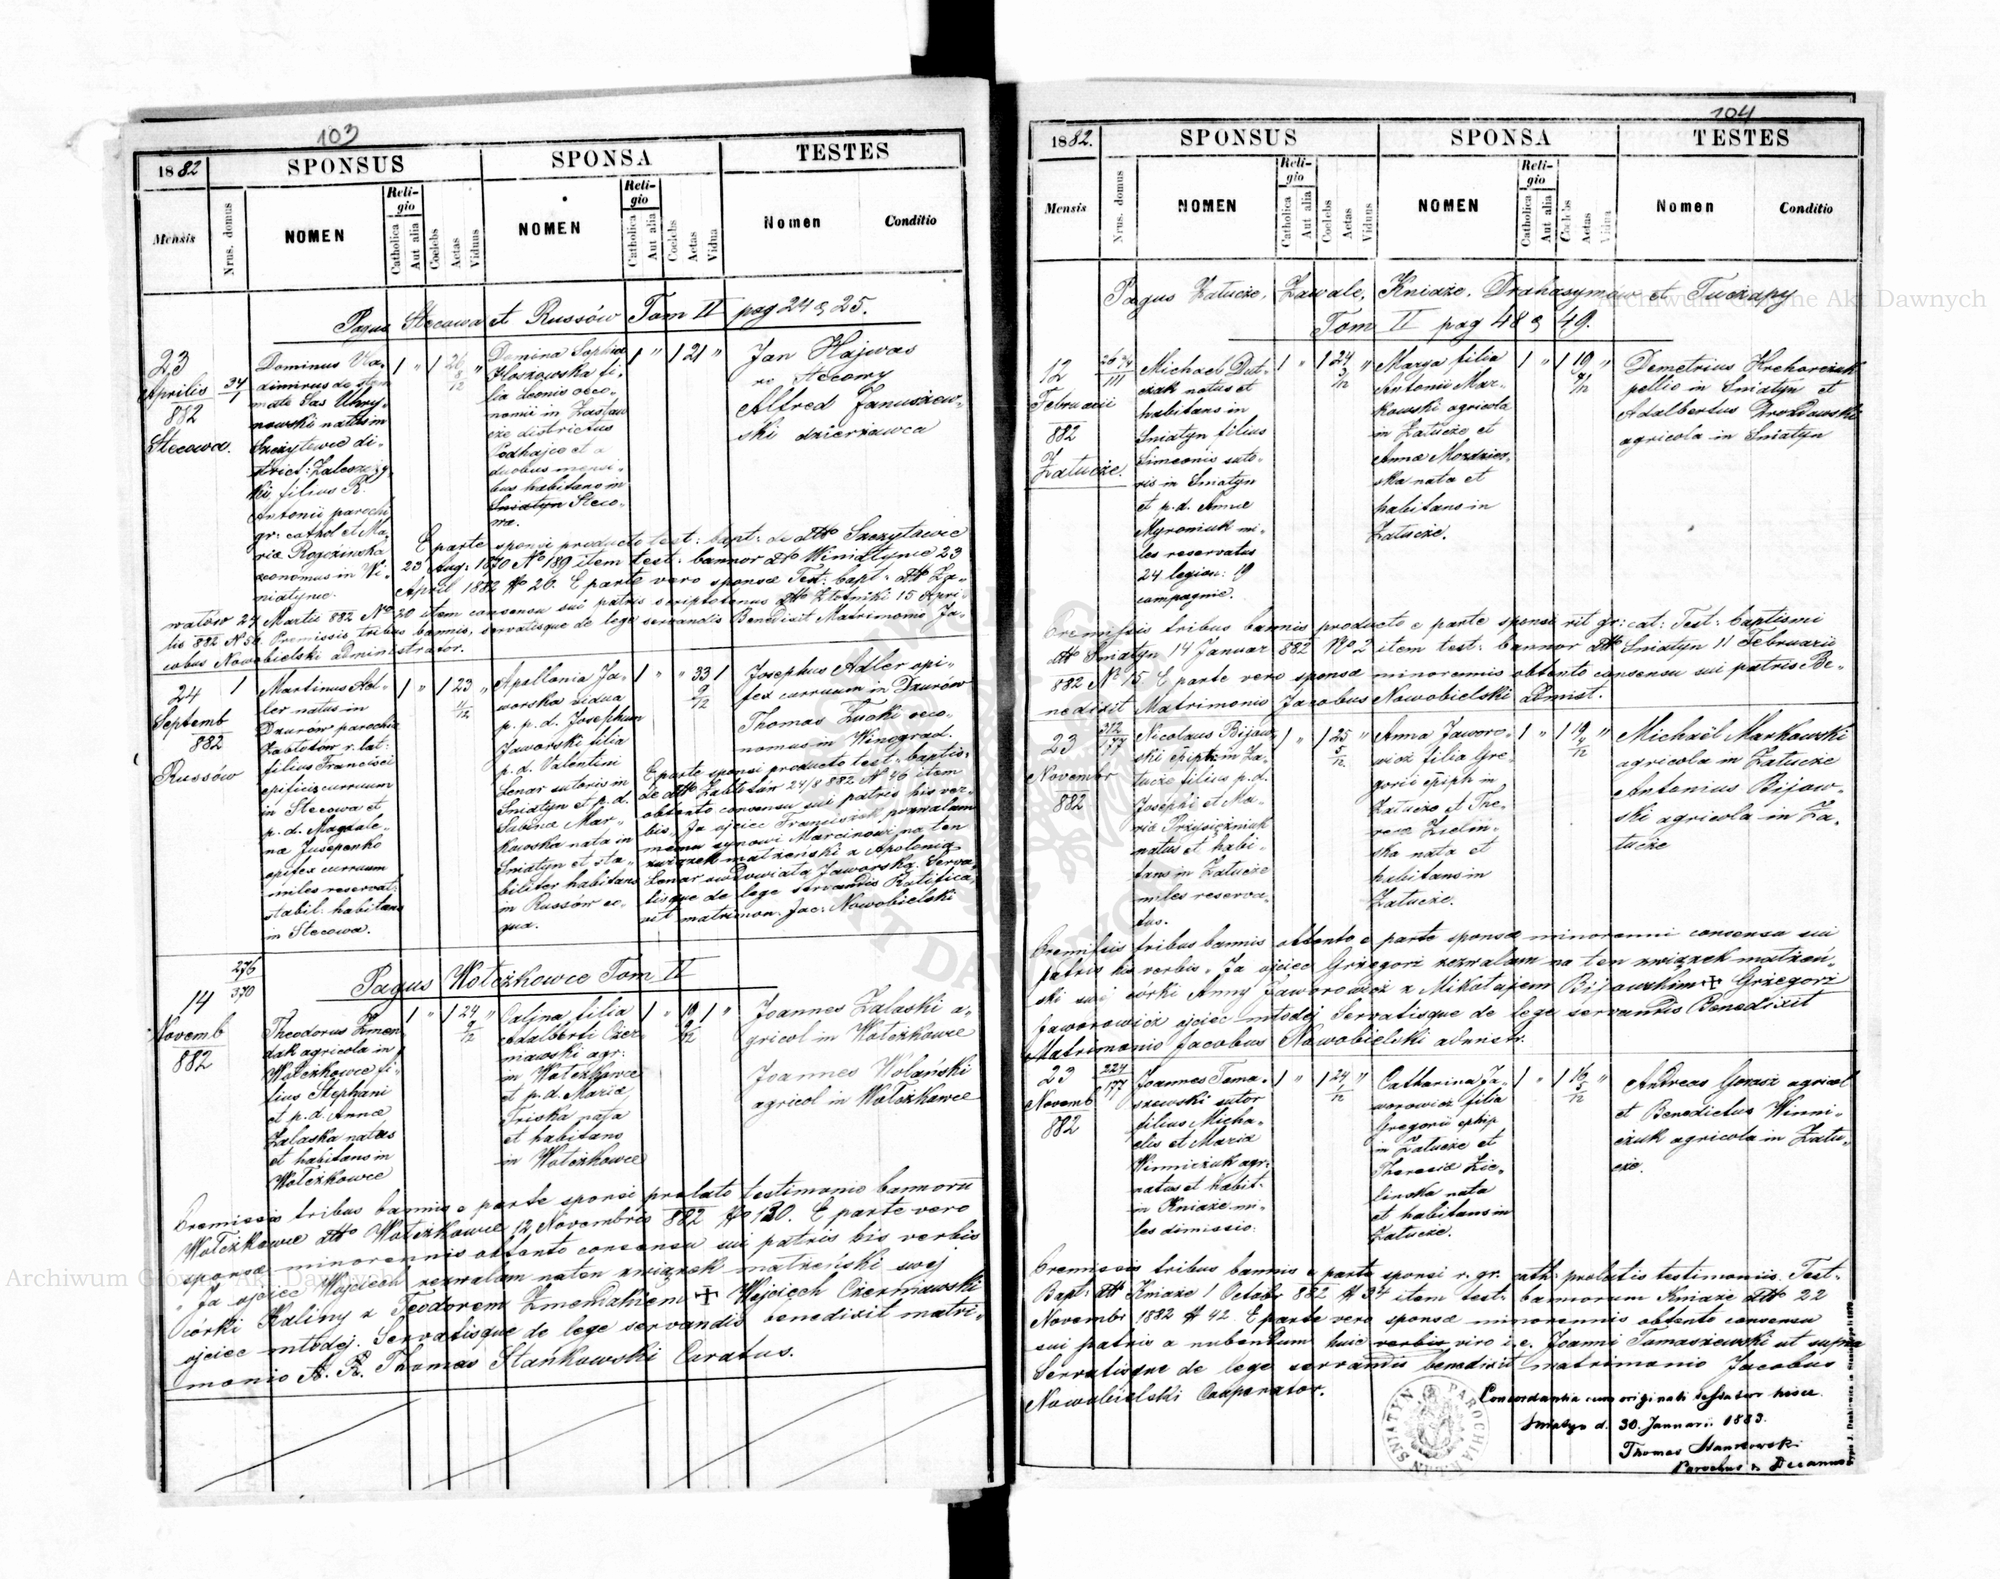 103
1882
SPONSUS
SPONSA
TESTES
Mensis
Nrus. domus
NOMEN
Religio
Catholica
Aut alia
Coelebs
Aetas
Viduus
NOMEN
Religio
Catholica
Aut alia
Coelebs
Aetas
Vidua
Nomen
Conditio
Pagus Stecowa et Russów Tom II pag 24 & 25.
23
Aprilis
882
Stecowa.
34
1
Dominus Vla-
dimirus de stem
mate Sas Uhry-
nowski natus in
Szczytowce di-
strict: Zaleszczy-
ki, filius R.
Antonii parochi
gr: cathol et Ma-
ria Rogozinska
oeconomus in Wi-
niatynce.
1 " 1 26
8/12
Domina Sophia
Kloskowska fi-
lia Leonis oeco-
nomi in Zastaw
cze districtus
Podhajce et a
duobus mensi-
bus habitans in
Sniatyn Steco-
wa.
1 " 1 21 "
Jan Hajwas
Stecowy
Alfred Januszew-
ski dzierżawca
E parte sponsi producto test: bapt: de dtto Szczytowce
23 Aug: 1870 No 189 item test: bannor dtto Winiatynce 23
April 1882 No 26. E parte vero sponsa Test: bapt: dtto Za-
wałów 24 Martii 882 No 20 item consensu sui patris scriptotenus dtto Złotniki 15 Apri-
lis 882 N 56. Premissis tribus bannis, servatisque de lege servandis Benedixit Matrimonio Ja-
cobus Nowobielski administrator.
24
Septemb
882
Russów
1
Martinus Ad-
ler natus in
Dzurów parochia
Zabłotów r. lat:
filius Francisci
opificis curruum
in Stecowa et
p. d. Magdale-
na Jusepenko
opifex curruum
miles reservat:
stabil: habitans
in Stecowa.
1 " 1 23 "
11/12
Apollonia Ja-
worska vidua
p. p. d. Josephum
Jaworski filia
p. d. Valentini
Lenar sutoris in
Sniatyn et p. d.
Sabina Mar-
kowska nata in
Sniatyn et sta-
biliter habitans
in Russów ee-
qua.
1 " " 33 1
9/12
Josephus Adler opi-
fex curruum in Dzurów
Thomas Zucki oeco-
nomus in Winograd.
E parte sponsi producto test: baptis:
de dtto Zabłotów 24/8 882 No 46 item
obtento consensu sui patris his ver-
bis, Ja ojciec Franciszek pozwalam
memu synowi Marcinowi na ten
związek małżeński z Apolonią
Lenar owdowiałą Jaworską. Serva-
tisque de lege servandis Ratifica-
vit matrimon: Jac: Nowobielski
Pagus Wołczkowce Tom II
276
370
14
Novemb
882
Theodorus Zmen
dak agricola in
Wołczkowce fi-
lius Stephani
et p. d. Anna
Zalaska natus
et habitans in
Wołczkowce
1 " 1 24 "
9/12
Calina filia
Adalberti Czer-
niawski agr:
in Wołczkowce
et p. d. Maria
Triska nata
et habitans
in Wołczkowce
1 " 19 1 "
9/12
Joannes Zalaski a-
gricol in Wołczkowce
Joannes Wolański
agricol in Wołczkowce
Premissis tribus bannis e parte sponsi prolato testimonio bannorū
Wołczkowce dtto Wołczkowce 12 Novembris 882 No 130. E parte vero
sponsa minorennis obtento consensu sui patris his verbis
" Ja ojciec Wojciech zezwalam na ten związek małżeński swej
córki Kaliny z Teodorem Zmendakiem + Wojciech Czerniawski
ojciec młodej. Servatisque de lege servandis benedixit matri-
monio A. R. Thomas Stańkowski Curatus.
104
1882.
SPONSUS
SPONSA
TESTES
Mensis
Nrus. domus
NOMEN
Religio
Catholica
Aut alia
Coelebs
Aetas
Viduus
NOMEN
Religio
Catholica
Aut alia
Coelebs
Aetas
Vidua
Nomen
Conditio
Pagus Załucze, Zawale, Kniaże, Drahasymów et Tuczapy
Tom II pag 48 & 49.
12
Februarii
882
Załucze.
111
Michael Dut-
czak natus et
habitans in
Sniatyn filius
Simeonis suto-
ris in Sniatyn
et p. d. Annae
Myroniuk mi-
les reservatus
24 legion: 19
compagnie.
1 " 1 24 "
3/12
Marya filia
Antonii Mar-
kowski agricola
in Załucze et
Anna Mozdzier-
ska nata et
habitans in
Załucze.
1 " 1 19 "
7/12
Demetrius Hrehorczuk
pellio in Sniatyn et
Adalbertus Drozdowski
agricola in Sniatyn
Premissis tribus bannis producto e parte sponsi rit gr: cat: Test: baptismi
dtto Sniatyn 14 Januar 882 No 2 item test: bannor dtto Sniatyn 11 Februarii
882 No 15. E parte vero sponsa minorennis obtento consensu sui patris Be-
nedixit Matrimonio Jacobus Nowobielski Admist.
23
Novembr
882
312
177
Nicolaus Bijow-
ski ephip: in Za-
łucze filius p. d.
Josephi et Ma-
ria Przysiężniuk
natus et habi-
tans in Załucze
miles reserva-
tus.
1 " 1 25 "
5/12
Anna Jaworo-
wicz filia Gre-
gorii ephip in
Załucze et The-
resa Zielin-
ska nata et
habitans in
Załucze.
1 " 1 19 "
4/12
Michaël Markowski
agricola in Załucze
Antonius Bijow-
ski agricola in Za-
łucze
Premissis tribus bannis obtento e parte sponsa minorenni consensu sui
patris his verbis „ Ja ojciec Grzegorz zezwalam na ten związek małżeń-
ski swej córki Anny Jaworowicz z Mikołajem Bijowskim + Grzegorz
Jaworowicz ojciec młodej Servatisque de lege servandis Benedixit
Matrimonio Jacobus Nowobielski adminstr.
23
Novemb
882
224
177
Joannes Toma-
szewski sutor
filius Micha-
elis et Maria
Winniczuk agr:
natus et habit-
in Kniaże mi-
les dimissio:
1 " 1 24 "
1/12
Catharina Ja-
worowicz filia
Gregorii ephip
in Załucze et
Theresia Zie-
linska nata
et habitans in
Załucze.
1 " 1 16 "
5/12
Andreas Gorasz agricol
et Benedictus Winni-
czuk agricola in Zału-
cze.
Premissis tribus bannis e parte sponsi r. gr. cath: prolatis testimoniis. Test-
Bapt: dtto Kniaże 1 Octobr 882 No 34 item test: bannorum Kniaże dtto 22
Novembr 1882 No 42. E parte vero sponsa minorennis obtento consensu
sui patris a nubendum huic verbis viro i.e. Joanni Tomaszewski ut supra
Servatisque de lege servandis benedixit matrimonio Jacobus
Nowobielski Cooperator.
Concordantia cum originali testatur hisce.
Sniatyn d. 30. Januarii 1883.
Thomas Stankowski
Parochus & Decanus
SNIATYN PAROCHIA
Archiwum Główne Akt Dawnych
Archiwum Główne Akt Dawnych